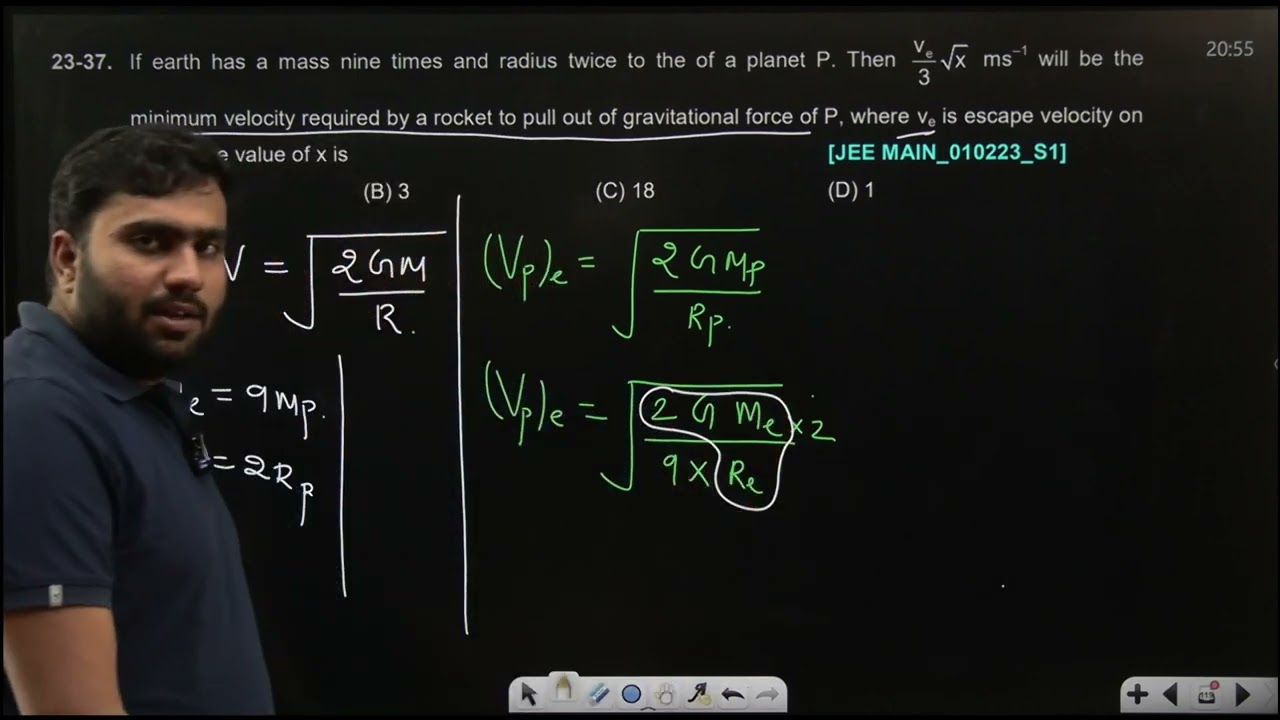 20:55
23-37. If earth has a mass nine times and radius twice to the of a planet P. Then v_e/3 √x ms⁻¹ will be the
minimum velocity required by a rocket to pull out of gravitational force of P, where v_e is escape velocity on
e value of x is [JEE MAIN_010223_S1]
(B) 3 (C) 18 (D) 1
V = √(2GM/R.)
e = 9Mp.
= 2Rp
(Vp)e = √(2GMp/Rp.)
(Vp)e = √(2GMe/9×Re ×2)